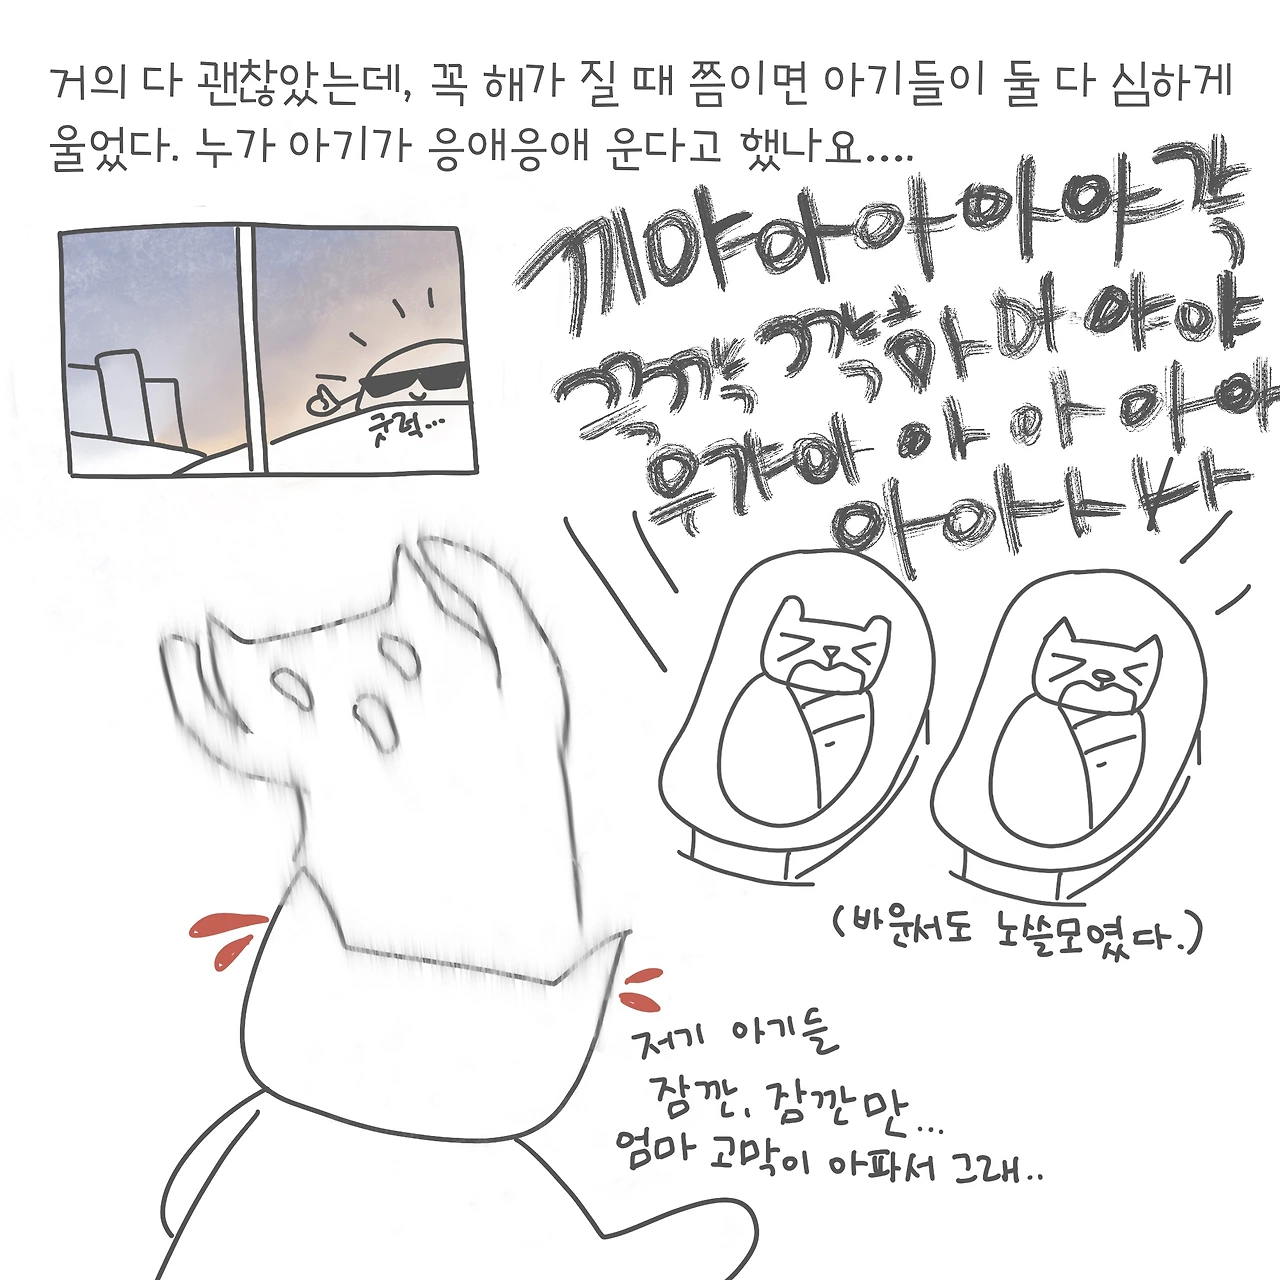 거의 다 괜찮았는데, 꼭 해가 질 때 쯤이면 아기들이 둘 다 심하게
울었다. 누가 아기가 응애응애 운다고 했나요....
굿럭...
끼야아아 아 야 각
끄깍 끄각하 며 야야
우갸아 아 아 아아
아아ㅏㅏㅏ
(바운서도 노쓸모였다.)
저기 아기들
잠깐, 잠깐만...
엄마 고막이 아파서 그래..